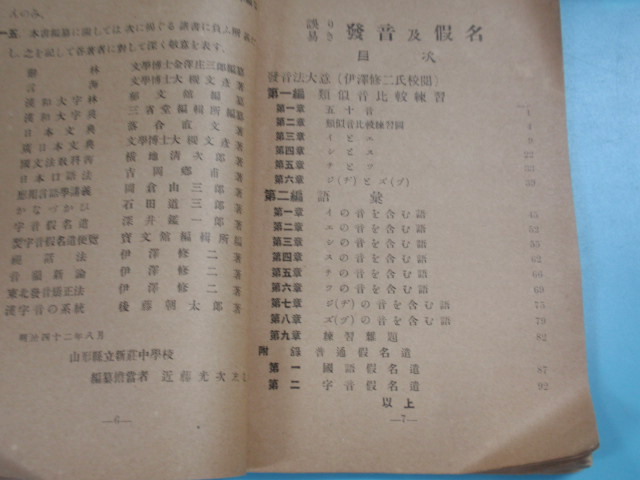 一五 本書編纂に關しては次に掲ぐる諸書に負ふ所
し、之を記して各著者に對して深く敬意を表す。
辭林 文學博士金澤庄三郎編纂
言海 文學博士大槻文彥著
漢和大字林 編
漢和大字典 三省堂編輯所編纂
日本文典 落合直文著
廣日本文典 文學博士大槻文彥著
國文法敎科書 橫地淸次郎著
日本口語法 吉岡鄕甫著
應用言語學講義 岡倉由三郎著
かなづかひ 石田道三郎著
字音假名遣 深井鑑一郎著
漢字音假名遣便覽 寶文館編輯所編
視話法 伊澤修二著
音韻新論 伊澤修二著
東北發音矯正法 伊澤修二著
漢字音の系統 後藤朝太郎著
明治四十二年八月
山形縣立新莊中學校
編纂擔當者 近藤光次
—6—
誤り易き 發音及假名
目次
發音法大意(伊澤修二氏校閲)
第一編 類似音比較練習
第一章 五十音 1
第二章 類似音比較練習圖 4
第三章 イとエ 9
第四章 シとス 22
第五章 チとツ 33
第六章 ジ(ヂ)とズ(ヅ) 39
第二編 語彙
第一章 イの音を含む語 45
第二章 エの音を含む語 52
第三章 シの音を含む語 55
第四章 スの音を含む語 62
第五章 チの音を含む語 66
第六章 ツの音を含む語 69
第七章 ジ(ヂ)の音を含む語 75
第八章 ズ(ヅ)の音を含む語 79
第九章 練習難題 82
附錄 普通假名遣
第一 國語假名遣 87
第二 字音假名遣 92
以上
—7—